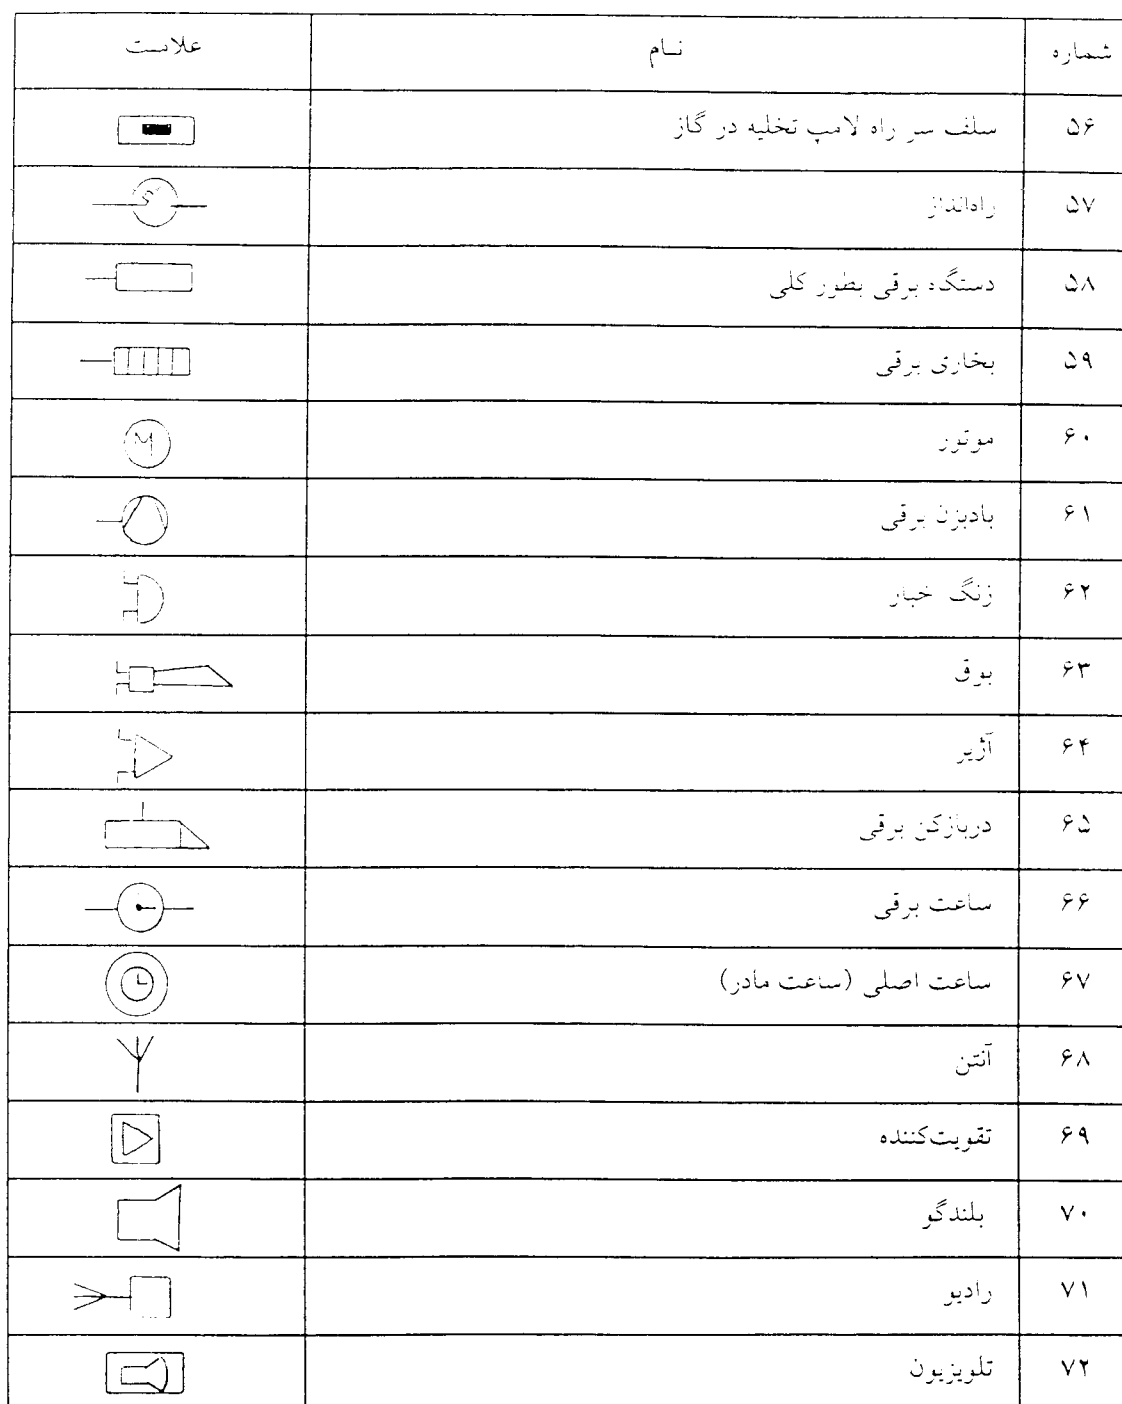 شماره نام علامت
۵۶ سلف سر راه لامپ تخلیه در گاز
۵۷ راه‌انداز S
۵۸ دستگاه برقی بطور کلی
۵۹ بخاری برقی
۶۰ موتور M
۶۱ بادبزن برقی
۶۲ زنگ خبار
۶۳ بوق
۶۴ آژیر
۶۵ دربازکن برقی
۶۶ ساعت برقی
۶۷ ساعت اصلی (ساعت مادر)
۶۸ آنتن
۶۹ تقویت‌کننده
۷۰ بلندگو
۷۱ رادیو
۷۲ تلویزیون